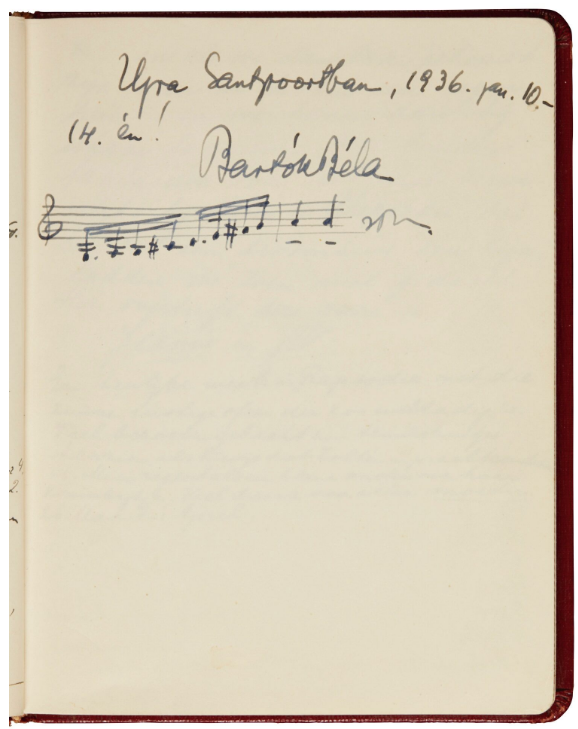 Ujra Santpoortban, 1936. jan. 10.-
14. én!
Bartók Béla
stb.